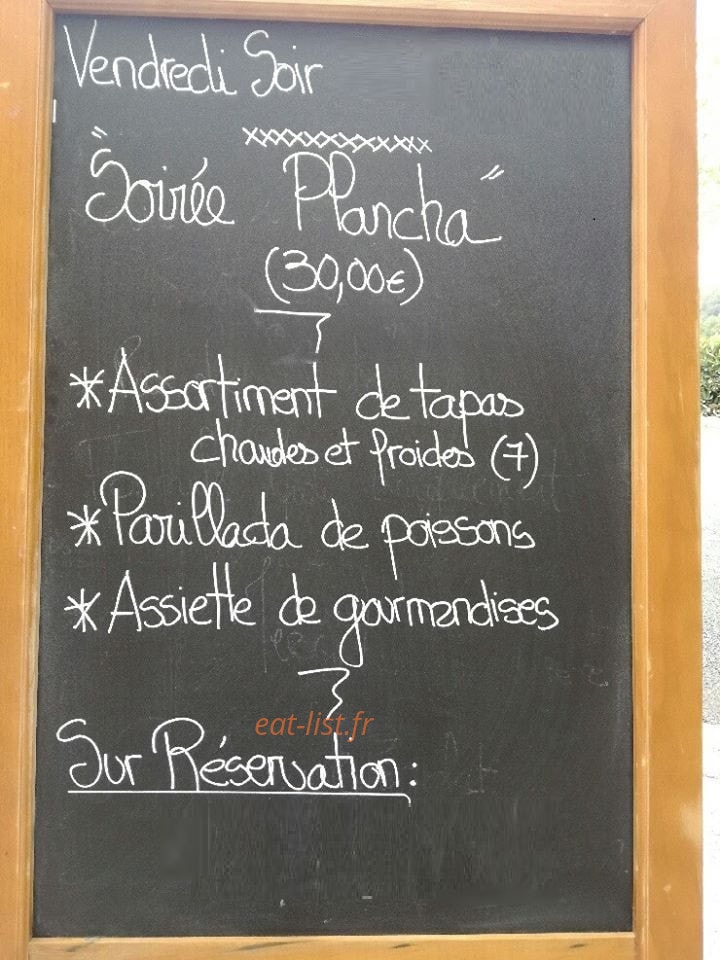 Vendredi Soir
xxxxxxxxxxxx
"Soirée Plancha"
(30,00€)
*Assortiment de tapas
chaudes et froides (7)
*Parillada de poissons
*Assiette de gourmandises
eat-list.fr
Sur Réservation: